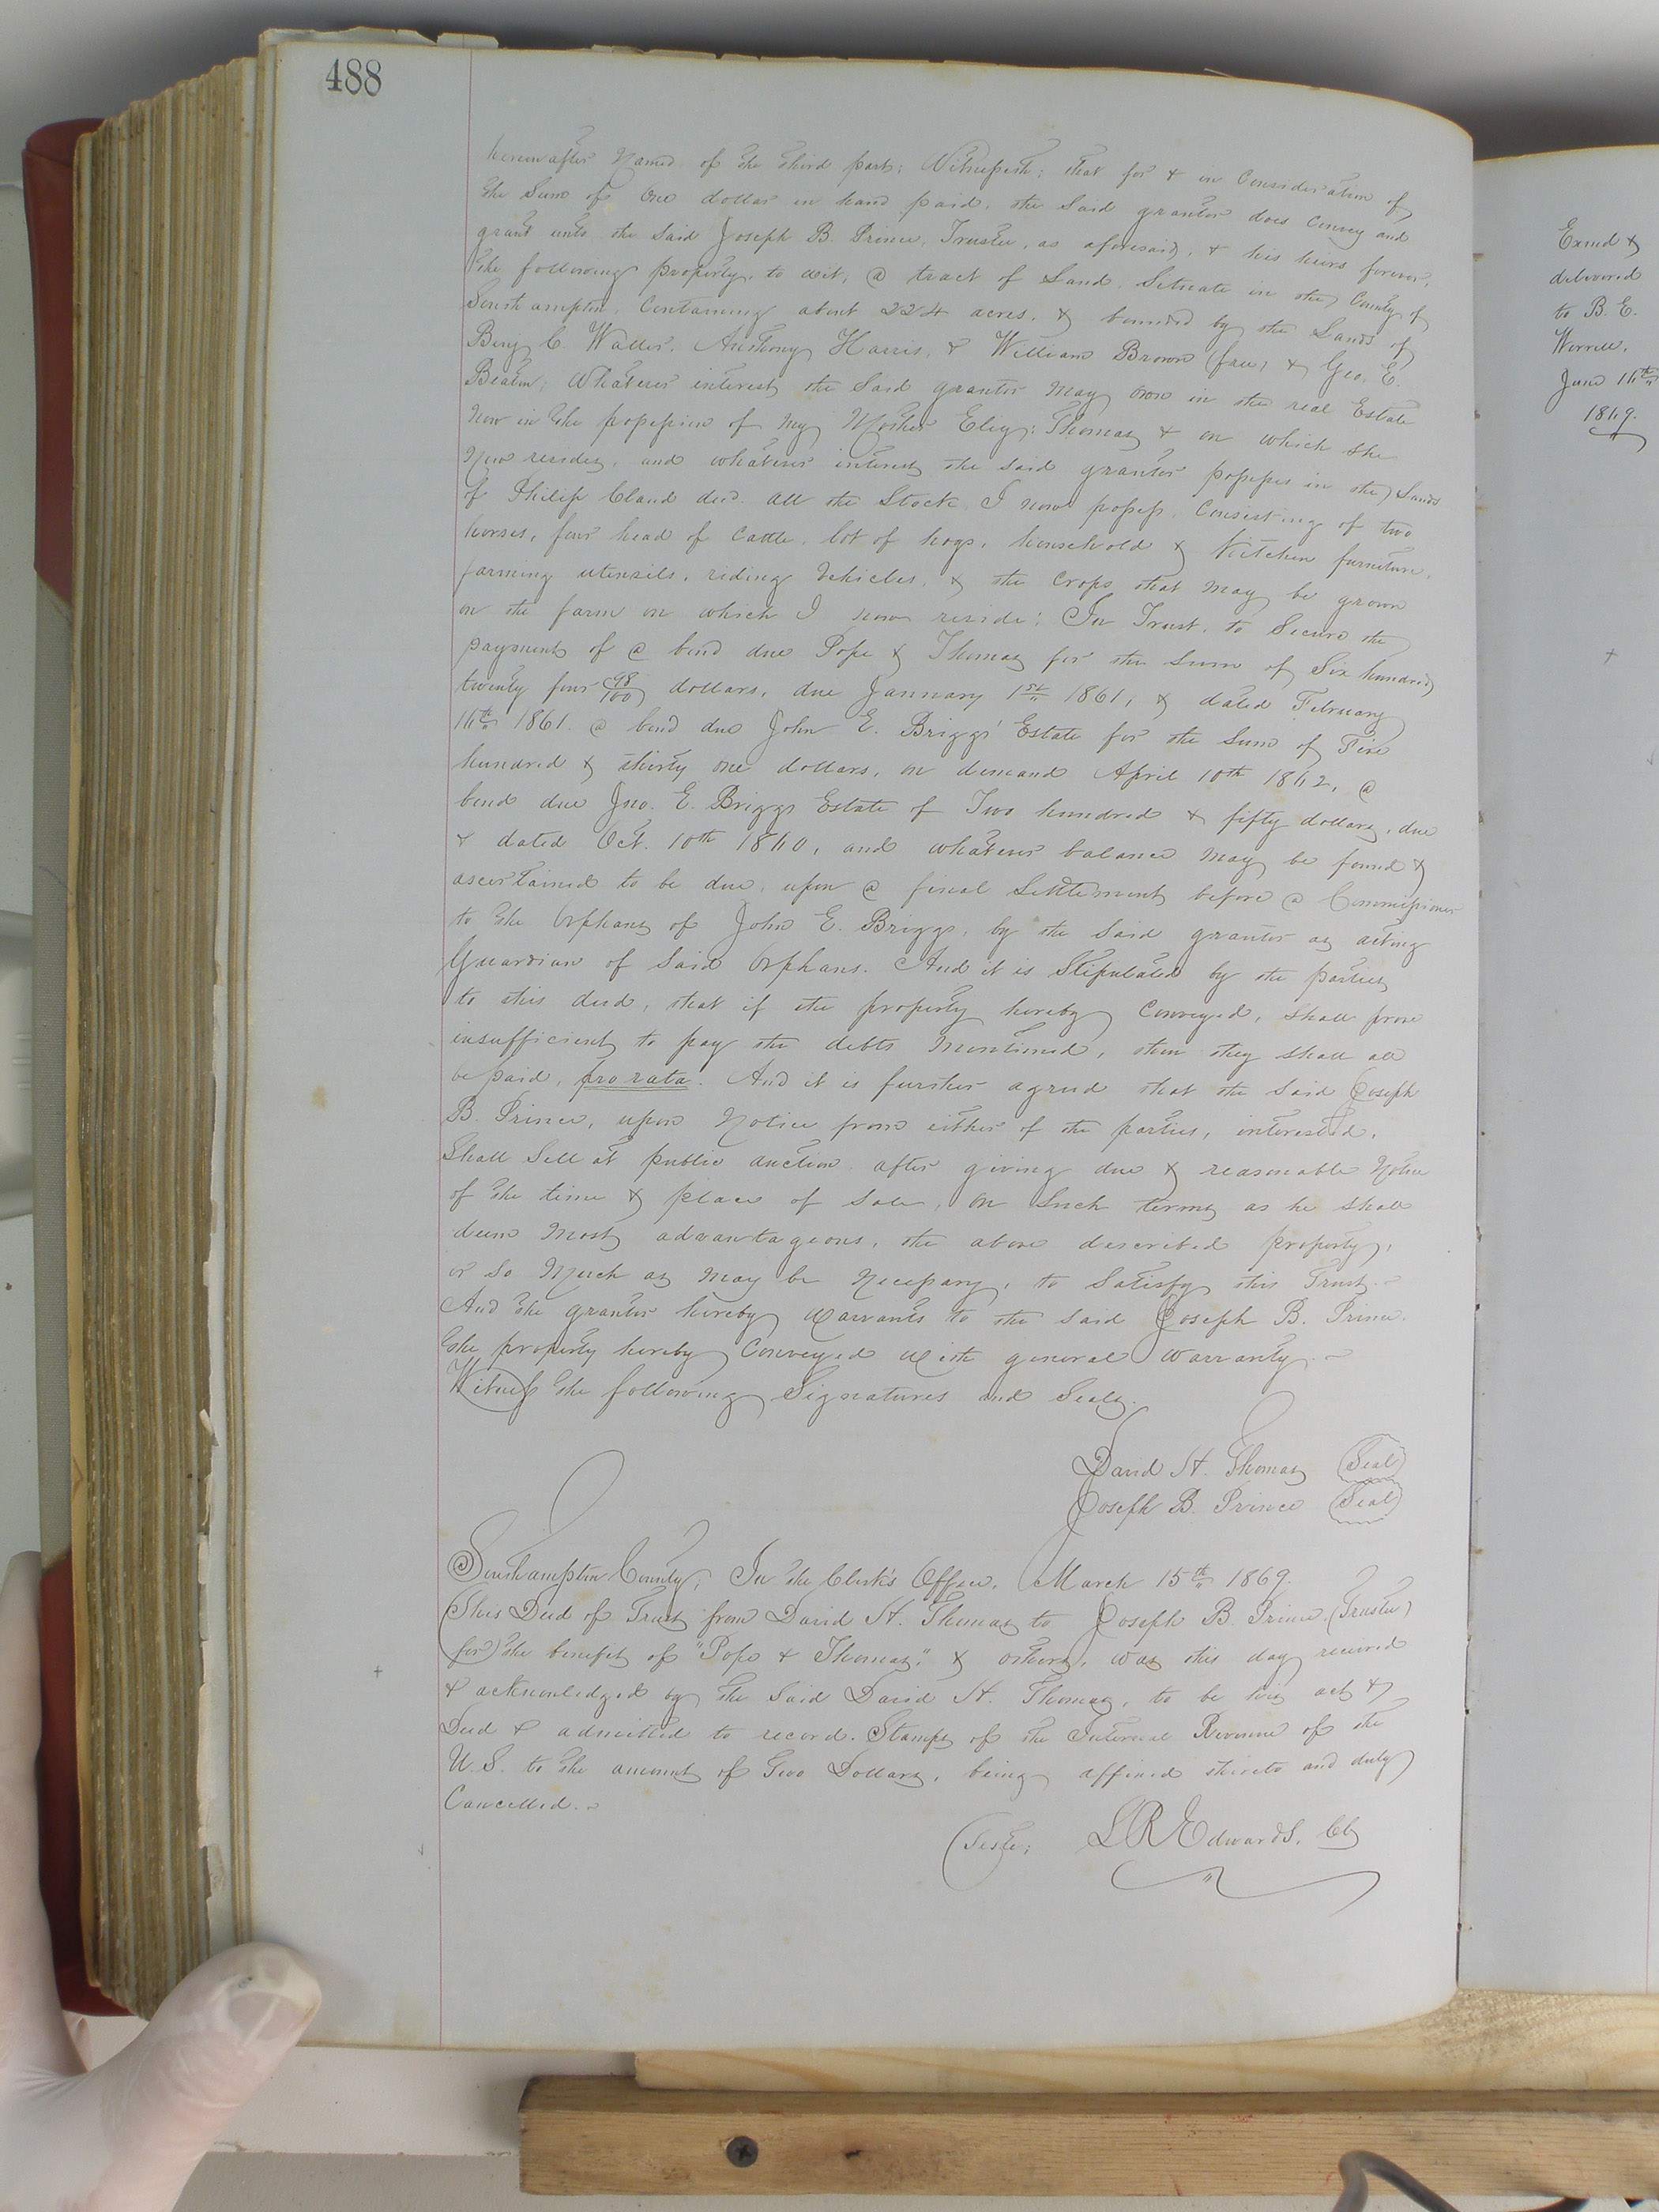 488
hereinafter Named, of the third part; Witnesseth; that for & in Consideration of
the Sum of One dollar in hand paid, the Said grantor does Convey and
grant unto the Said Joseph B. Prince, Trustee, as aforesaid, & his heirs forever,
the following property, to wit, a tract of Land, Situate in the County of
Southampton, Containing about 224 acres, & bounded by the Lands of
Benj C. Waller, Anthony Harris, & William Brown (free) & Geo. E.
Beaton; Whatever interest the Said grantor May own in the real Estate
Now in the possession of My Mother Eliz: Thomas & on which She
Now resides, and whatever interest the Said grantor possesses in the Lands
of Philip Claud decd. all the Stock I now possess, Consisting of two
horses, four head of Cattle, lot of hogs, household & Kitchen furniture,
farming utensils, riding Vehicles, & the Crops that May be grown
on the farm on which I now reside; In Trust, to Secure the
payment of a bond due Pope & Thomas for the Sum of Six hundred
twenty four 98/100 dollars, due January 1st 1861, & dated February
16th 1861. a bond due John E. Briggs' Estate for the Sum of Five
hundred & thirty one dollars, on demand April 10th 1862, a
bond due Jno. E. Briggs Estate of Two hundred & fifty dollars, due
& dated Oct. 10th 1860, and whatever balance May be found &
ascertained to be due, upon a final Settlement before a Commissioner
to the Orphans of John E. Briggs, by the Said grantor as acting
Guardian of Said Orphans. And it is Stipulated by the parties
to this deed, that if the property hereby Conveyed, Shall prove
insufficient to pay the debts Mentioned, then they Shall all
be paid, pro rata. And it is further agreed that the Said Joseph
B. Prince, upon Notice from either of the parties, interested,
Shall Sell at public auction, after giving due & reasonable Notice
of the time & place of Sale, on Such terms as he Shall
deem Most advantageous, the above described property,
or So Much as May be Necessary, to Satisfy this Trust.
And the grantor hereby Warrants to the Said Joseph B. Prince,
the property hereby Conveyed with general Warranty.
Witness the following Signatures and Seals.
David H. Thomas (Seal)
Joseph B. Prince (Seal)
Southampton County; In the Clerk's Office, March 15th 1869.
This Deed of Trust from David H. Thomas to Joseph B. Prince (Trustee)
for) the benefit of "Pope & Thomas," & others, was this day received
& acknowledged by the Said David H. Thomas, to be his act &
Deed & admitted to record. Stamps of the Internal Revenue of the
U.S. to the amount of Two Dollars, being affixed thereto and duly
Cancelled.
Teste; L R Edwards, Clk
Examd &
delivered
to B. E.
Worrell,
June 16th
1869.